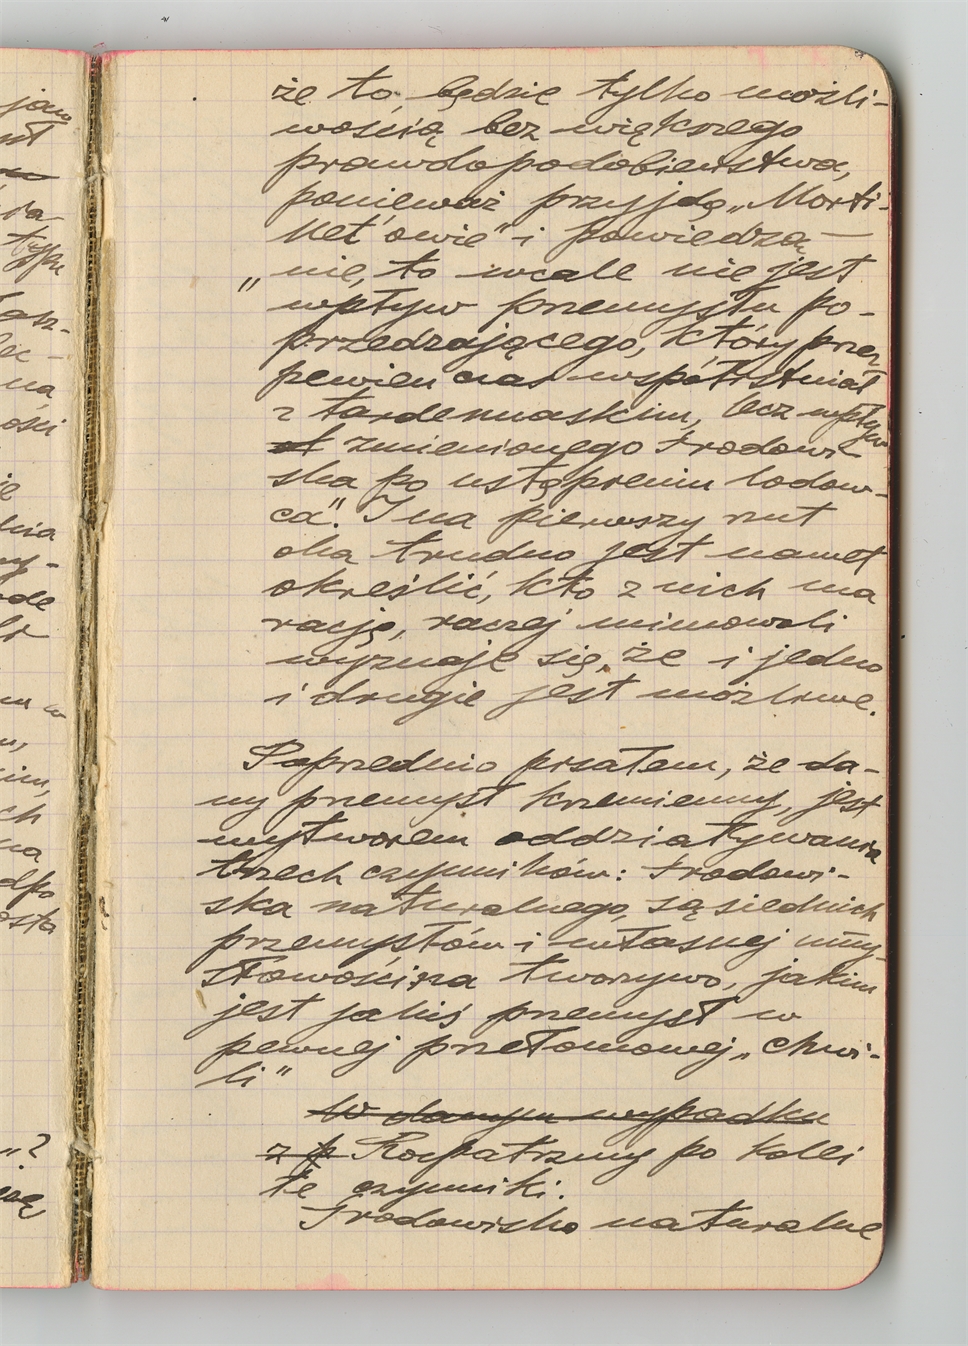 że to, będzie tylko możli-
wością bez większego
prawdopodobieństwa,
ponieważ przyjdą „Morti-
llet'owie" i powiedzą —
„nie, to wcale nie jest
wpływ przemysłu po-
przedzającego, który przez
pewien czas współistniał
z tardenuaskim, lecz wpływ
zmienionego środowi-
ska po ustąpieniu lodow-
ca". I na pierwszy rzut
oka trudno jest nawet
określić, kto z nich ma
rację, raczej mimowoli
wyznaje się, że i jedno
i drugie jest możliwe.
Poprzednio pisałem, że da-
ny przemysł krzemienny, jest
wytworem oddziaływania
trzech czynników: środowi-
ska naturalnego, sąsiednich
przemysłów i własnej umy-
słowości na tworzywo, jakim
jest jakiś przemysł w
pewnej przełomowej „chwi-
li"
W danym wypadku
z p Rozpatrzmy po kolei
te czynniki.
Środowisko naturalne
jaw
na
ości
ch
na
"?